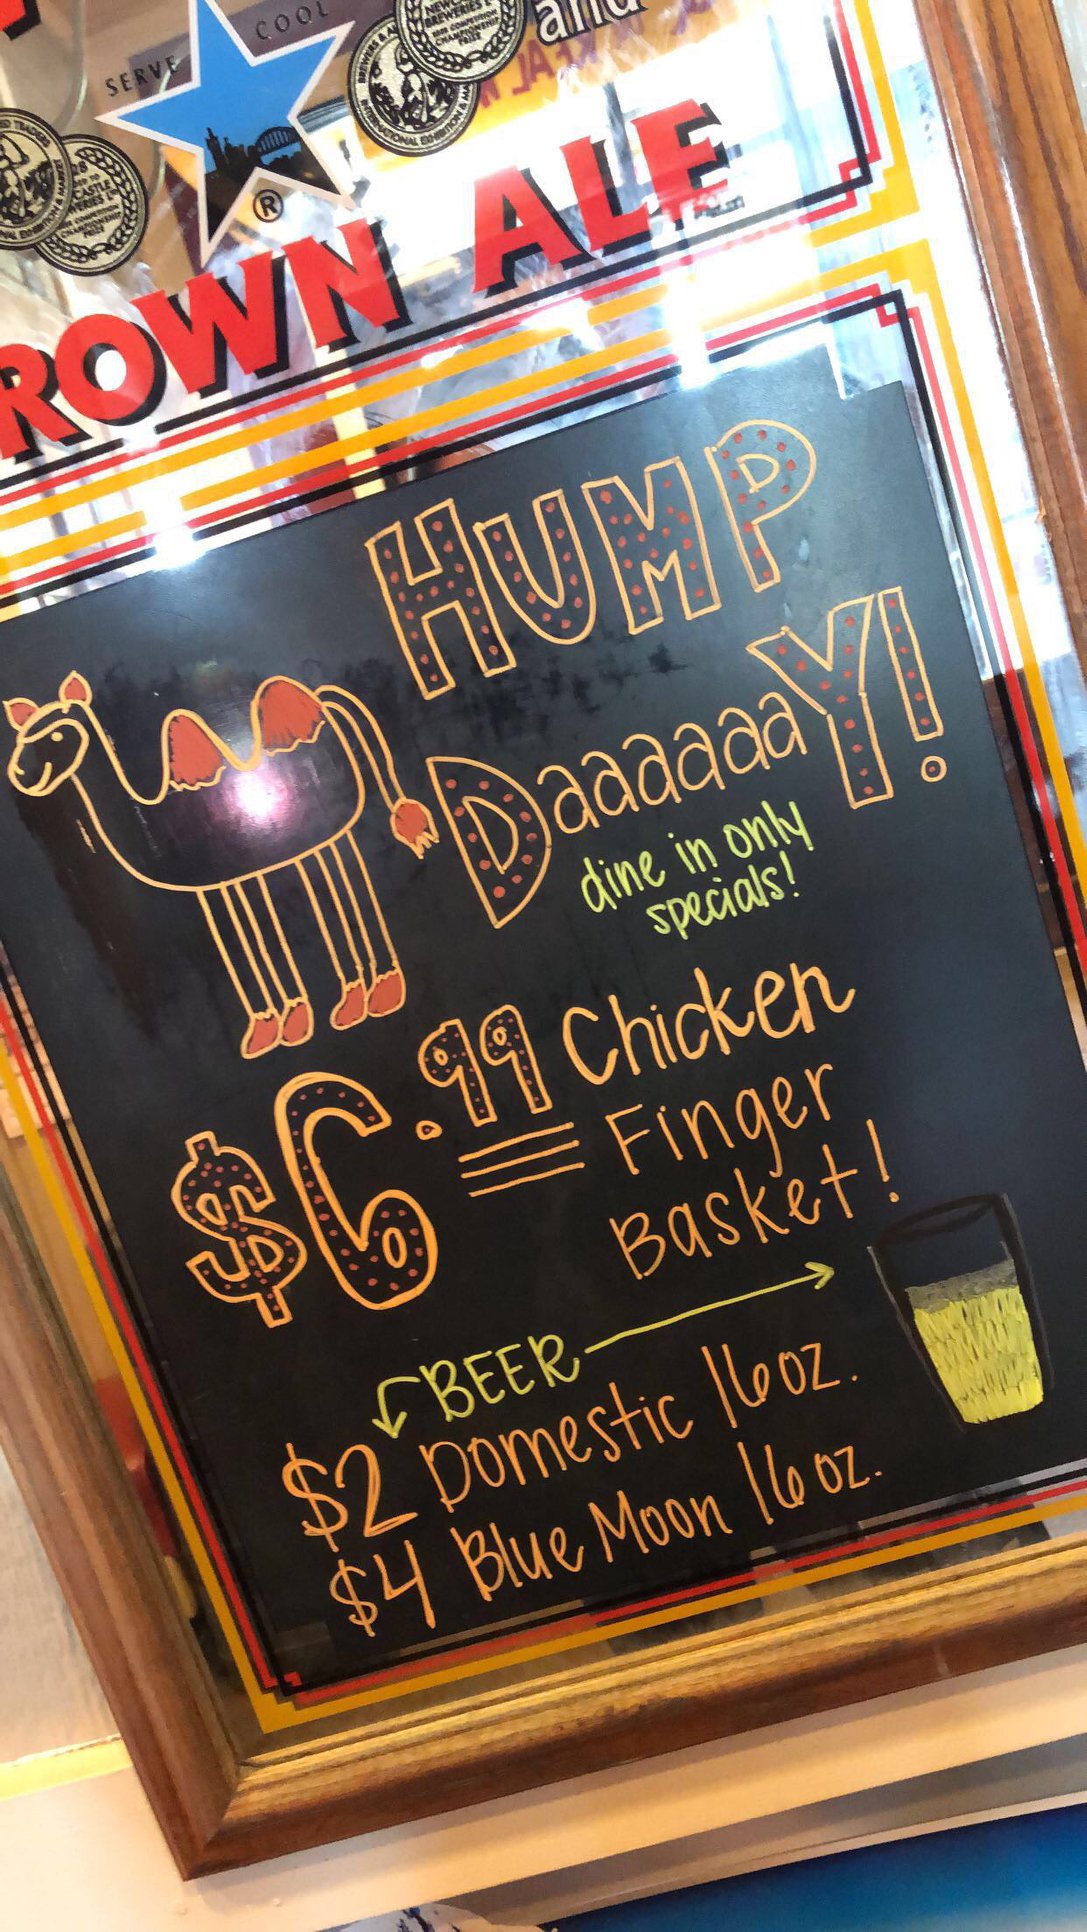 SERVE COOL
and
ROWN ALE
HUMP
DaaaaaaaY!
dine in only
specials!
$6.99 Chicken
Finger
Basket!
BEER
$2 Domestic 16oz.
$4 Blue Moon 16oz.